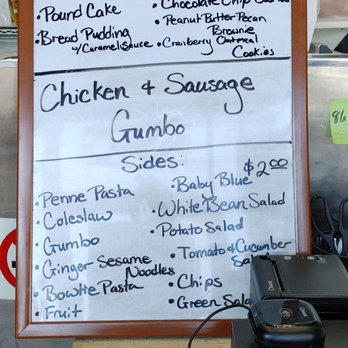 • Pound Cake
• Bread Pudding
w/ Caramel Sauce
• Chocolate Chip
• Peanut Butter Pecan
Brownie
• Cranberry Oatmeal
Cookies
Chicken & Sausage
Gumbo
Sides:
$2.00
• Penne Pasta
• Coleslaw
• Gumbo
• Ginger Sesame
Noodles
• Bowtie Pasta
• Fruit
• Baby Blue
• White Bean Salad
• Potato Salad
• Tomato & Cucumber
• Chips
• Green Salad
86